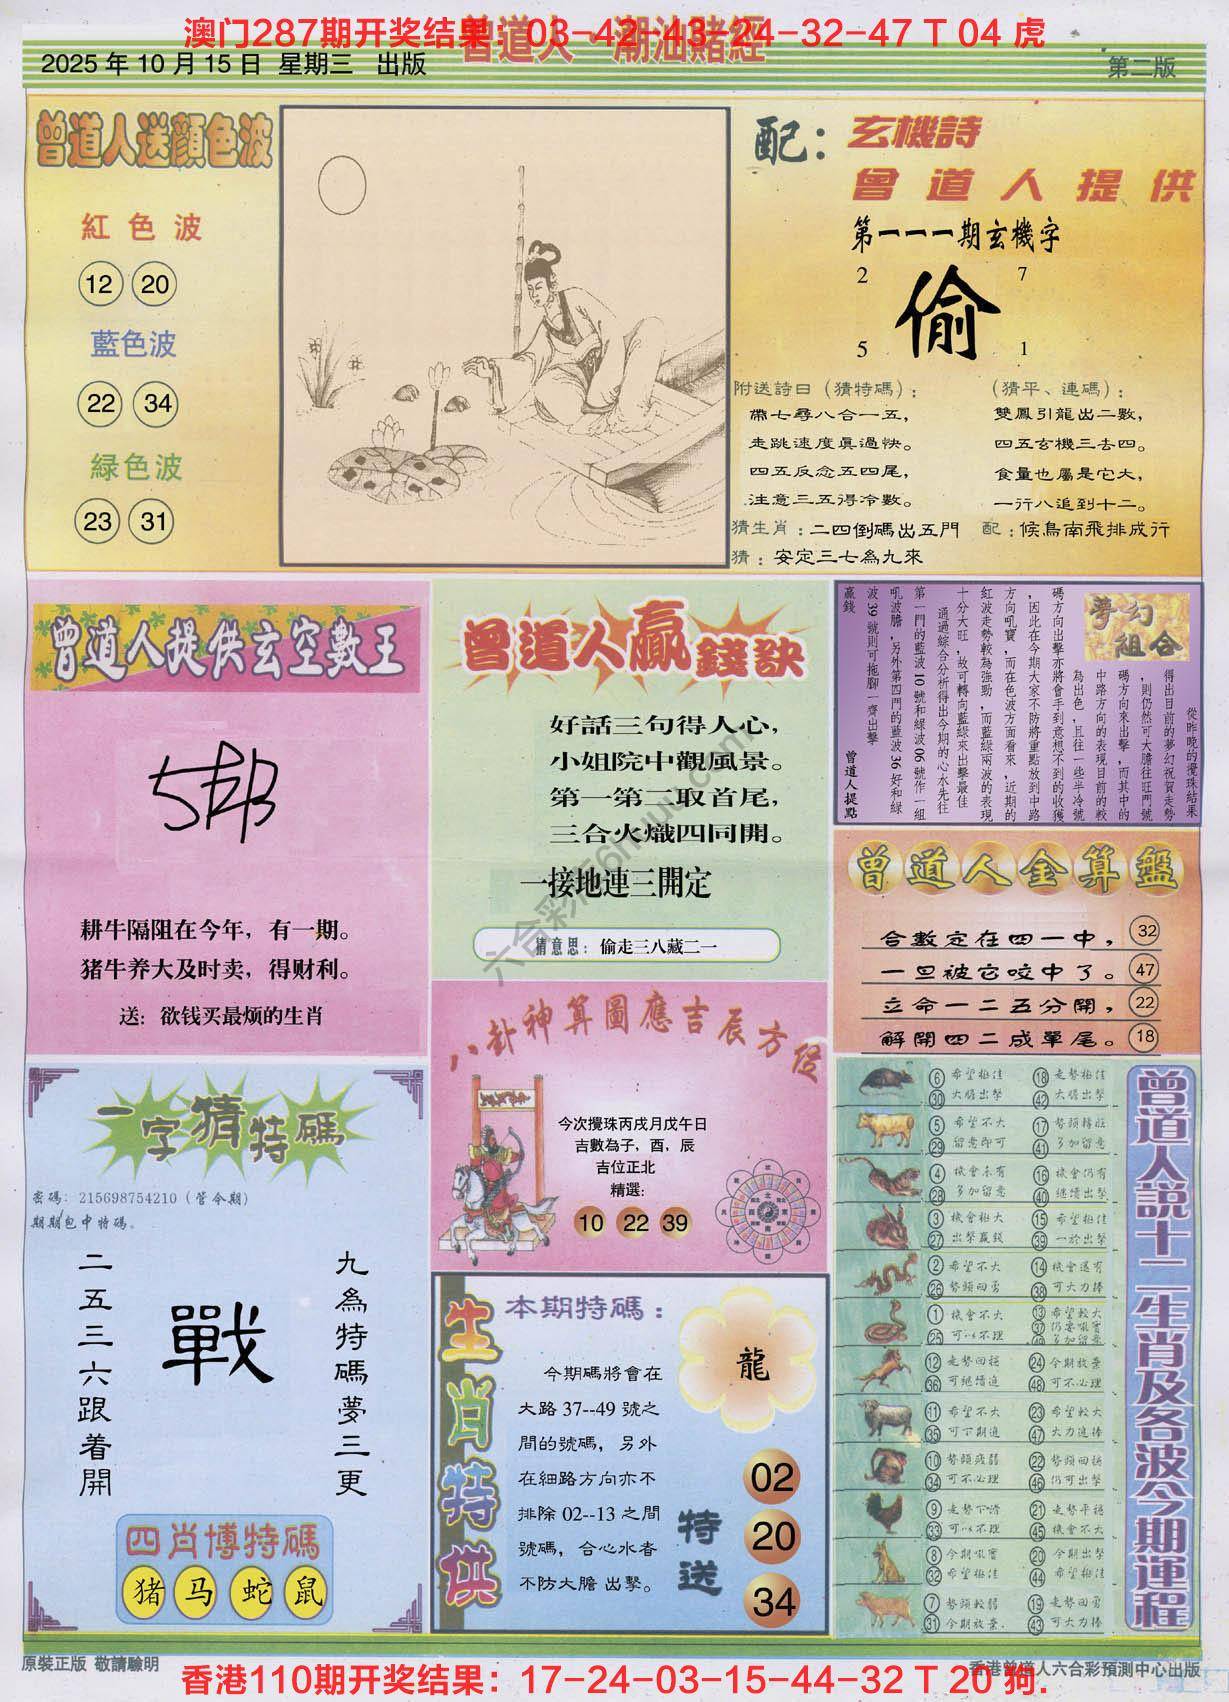 澳门287期开奖结果：03-42-43-24-32-47 T 04 虎
曾道人·潮汕賭經
2025 年 10 月 15 日 星期三 出版
第二版
曾道人送顏色波
紅色波
12 20
藍色波
22 34
緑色波
23 31
配：玄機詩
曾道人提供
第一一一期玄機字
2 7
偷
5 1
附送詩日（猜特碼）：
帶七尋八合一五，
走跳速度真過快。
四五反念五四尾，
注意三五得令數。
（猜平、連碼）：
雙鳳引龍出二數，
四五玄機三去四。
食量也屬是它大，
一行八追到十二。
猜生肖：二四倒碼出五門
配：候鳥南飛排成行
猜：安定三七為九來
曾道人提供玄空數王
耕牛隔阻在今年，有一期。
猪牛养大及时卖，得财利。
送：欲钱买最烦的生肖
曾道人贏錢訣
好話三句得人心，
小姐院中觀風景。
第一第二取首尾，
三合火熾四同開。
一接地連三開定
猜意思：偷走三八藏二一
夢幻組合
從昨晚的攪珠結果
得出目前的夢幻祝賀走勢
，則仍然可大膽往旺門號
碼方向來出擊，而其中的
中路方向的表現目前的較
為出色，且往一些半冷號
碼方向出擊亦將會手到意想不到的收獲
，因此在今期大家不防將重點放到中路
方向吼寶，而在色波方面看來，近期的
紅波走勢較為強勁，而藍綠兩波的表現
十分大旺，故可轉向藍綠來出擊最佳
通過綜合分析得出今期的心水先往
第一門的藍波 10 號和綠波 06 號作一組
吼波膽，另外第四門的藍波 36 好和綠
波 39 號則可拖腳一齊出擊
贏錢
曾道人提點
曾道人金算盤
合數定在四一中， 32
一旦被它咬中了。 47
立命一二五分開， 22
解開四二成單尾。 18
八卦神算圖應吉辰方位
今次攪珠丙戌月戊午日
吉數為子，酉，辰
吉位正北
精選：
10 22 39
一字猜特碼
密碼：215698754210（管令期）
期期包中特碼。
二五三六跟着開
戰
九為特碼夢三更
四肖博特碼
猪 马 蛇 鼠
生肖特供
本期特碼：
龍
今期碼將會在
大路 37--49 號之
間的號碼，另外
在細路方向亦不
排除 02--13 之間
號碼，合心水者
不防大膽 出擊。
特送
02
20
34
曾道人説十二生肖及各波今期運程
6 希望極佳 18 走勢極佳
30 大膽出擊 42 大膽出擊
5 希望不大 17 勢頭轉旺
29 留意即可 41 多加留意
4 機會未有 16 機會仍有
28 多加留意 40 繼續出擊
3 機會極大 15 希望極佳
27 出擊贏錢 39 一於出擊
2 希望不大 14 機會還有
26 勢頭回勇 38 可大力捧
1 機會不大 13 希望較大
25 可以不理 37 仍要吼實
49 多加留意
12 走勢回穩 24 今期放棄
36 可繼續追 48 可不必理
11 希望不大 23 希望較大
35 可下期追 47 大力追捧
10 勢頭疲弱 22 勢頭回穩
34 可不必理 46 仍可出擊
9 走勢下滑 21 走勢平穩
33 可以不理 45 機會不大
8 今期吼實 20 今期出擊
32 希望極佳 44 希望極佳
7 勢頭較弱 19 走勢回勇
31 今期放棄 43 可大力捧
六合彩票6huuu.com
原裝正版 敬請驗明
香港曾道人六合彩預測中心出版
香港110期开奖结果：17-24-03-15-44-32 T 20 狗.